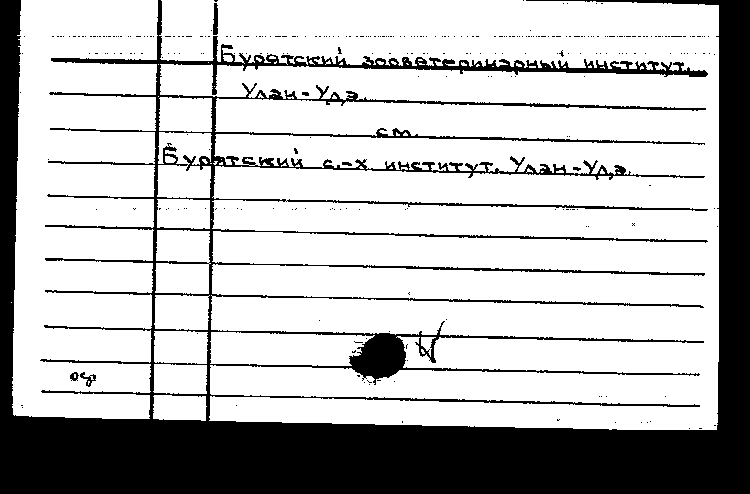 Бурятский зооветеринарный институт.
Улан-Удэ.
см.
Бурятский с.-х институт. Улан-Удэ.